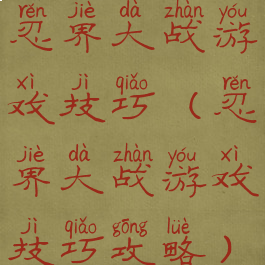 rěn jiè dà zhàn yóu
忍界大战游
xì jì qiǎo rěn
戏技巧（忍
jiè dà zhàn yóu xì
界大战游戏
jì qiǎo gōng lüè
技巧攻略）